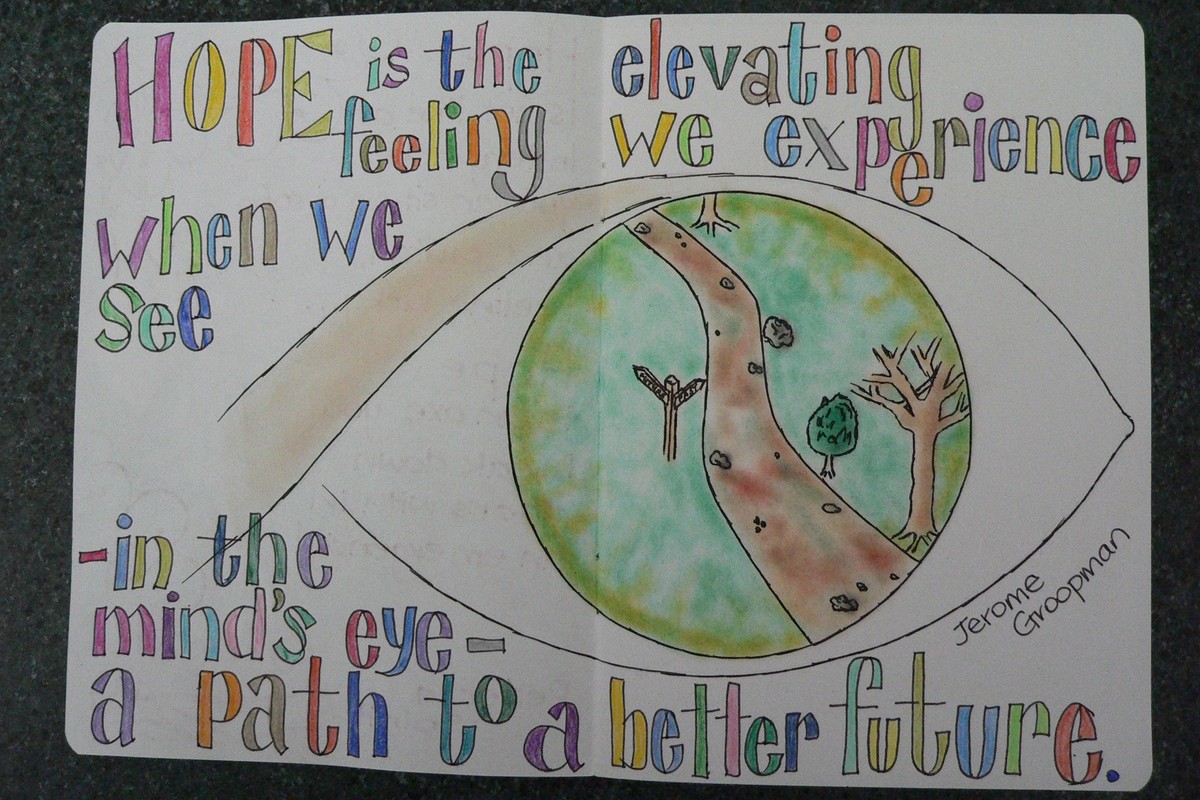 HOPE is the elevating
feeling we experience
when we
see
-in the
mind's eye-
a path to a better future.
Jerome
Groopman